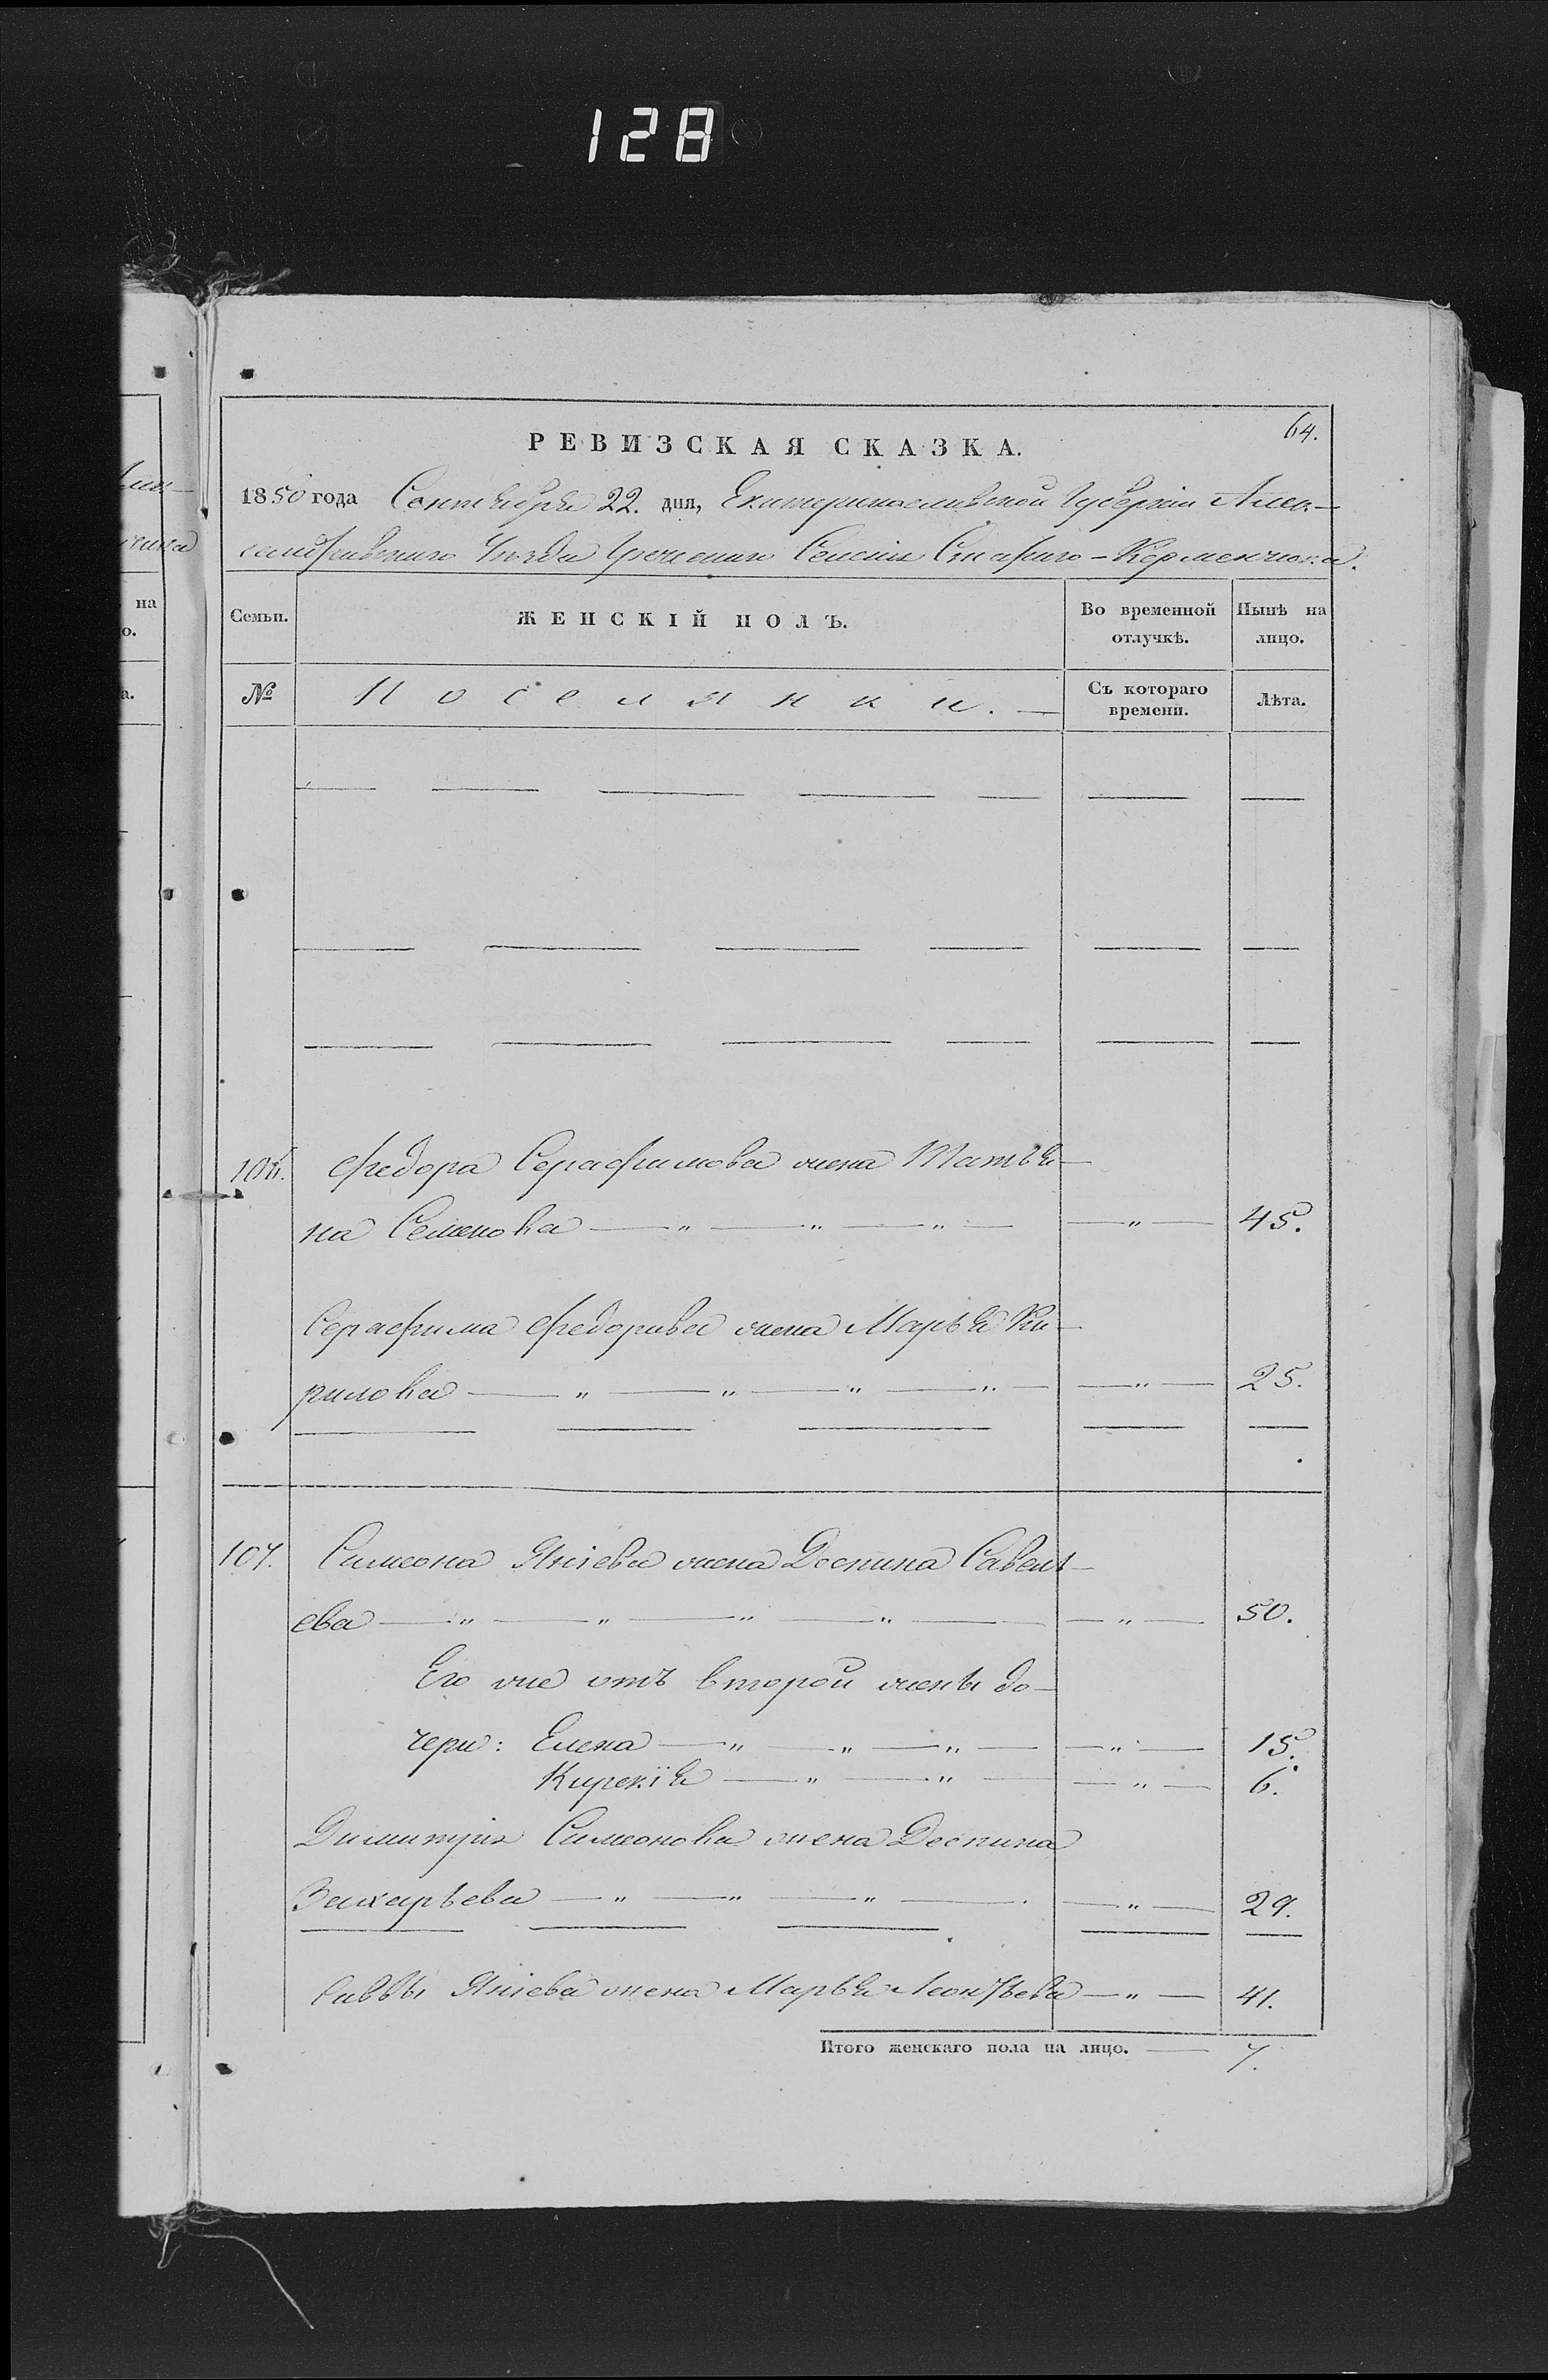 128
64.
РЕВИЗСКАЯ СКАЗКА.
1850 года Сентября 22. дня, Екатеринославской Губерніи Алек-
сандровскаго Уѣзда Греческаго Селенія Стараго-Керменчика.
Семьи.
ЖЕНСКІЙ ПОЛЪ.
Во временной отлучкѣ.
Нынѣ на лицо.
№
Поселянки. —
Съ котораго времени.
Лѣта.
106. Федора Серафимова жена Татья-
на Семенова — „ — „ — „ — — „ — 45.
Серафима Федорова жена Марья Ки-
рилова — „ — „ — „ — „ — — „ — 25.
107. Симеона Яніева жена Деспина Савель-
ева — „ — „ — „ — „ — — „ — 50.
Его же отъ второй жены до-
чери: Елена — „ — „ — „ — — „ — 15.
Кирекія — „ — „ — — „ — 6.
Димитрія Симеонова жена Деспина
Захарьева — „ — „ — „ — — „ — 29.
Саввы Яніева жена Марья Леонтьева — „ — 41.
Итого женскаго пола на лицо. — 7.
на
о.
а.